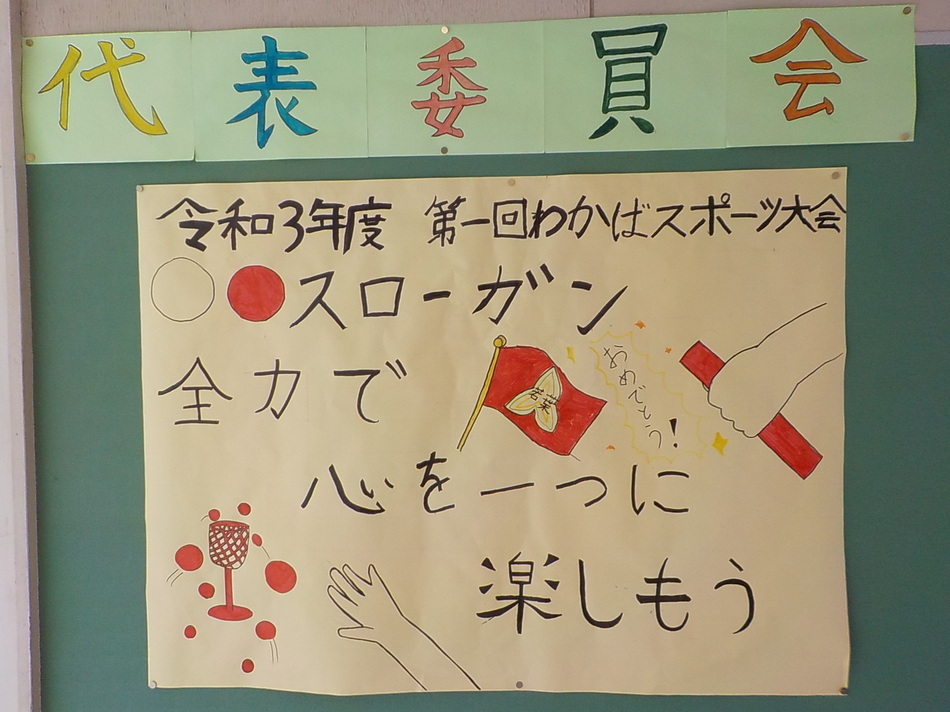 代表委員会
令和3年度 第一回わかばスポーツ大会
スローガン
全力で
若葉
おめでとう!
心を一つに
楽しもう